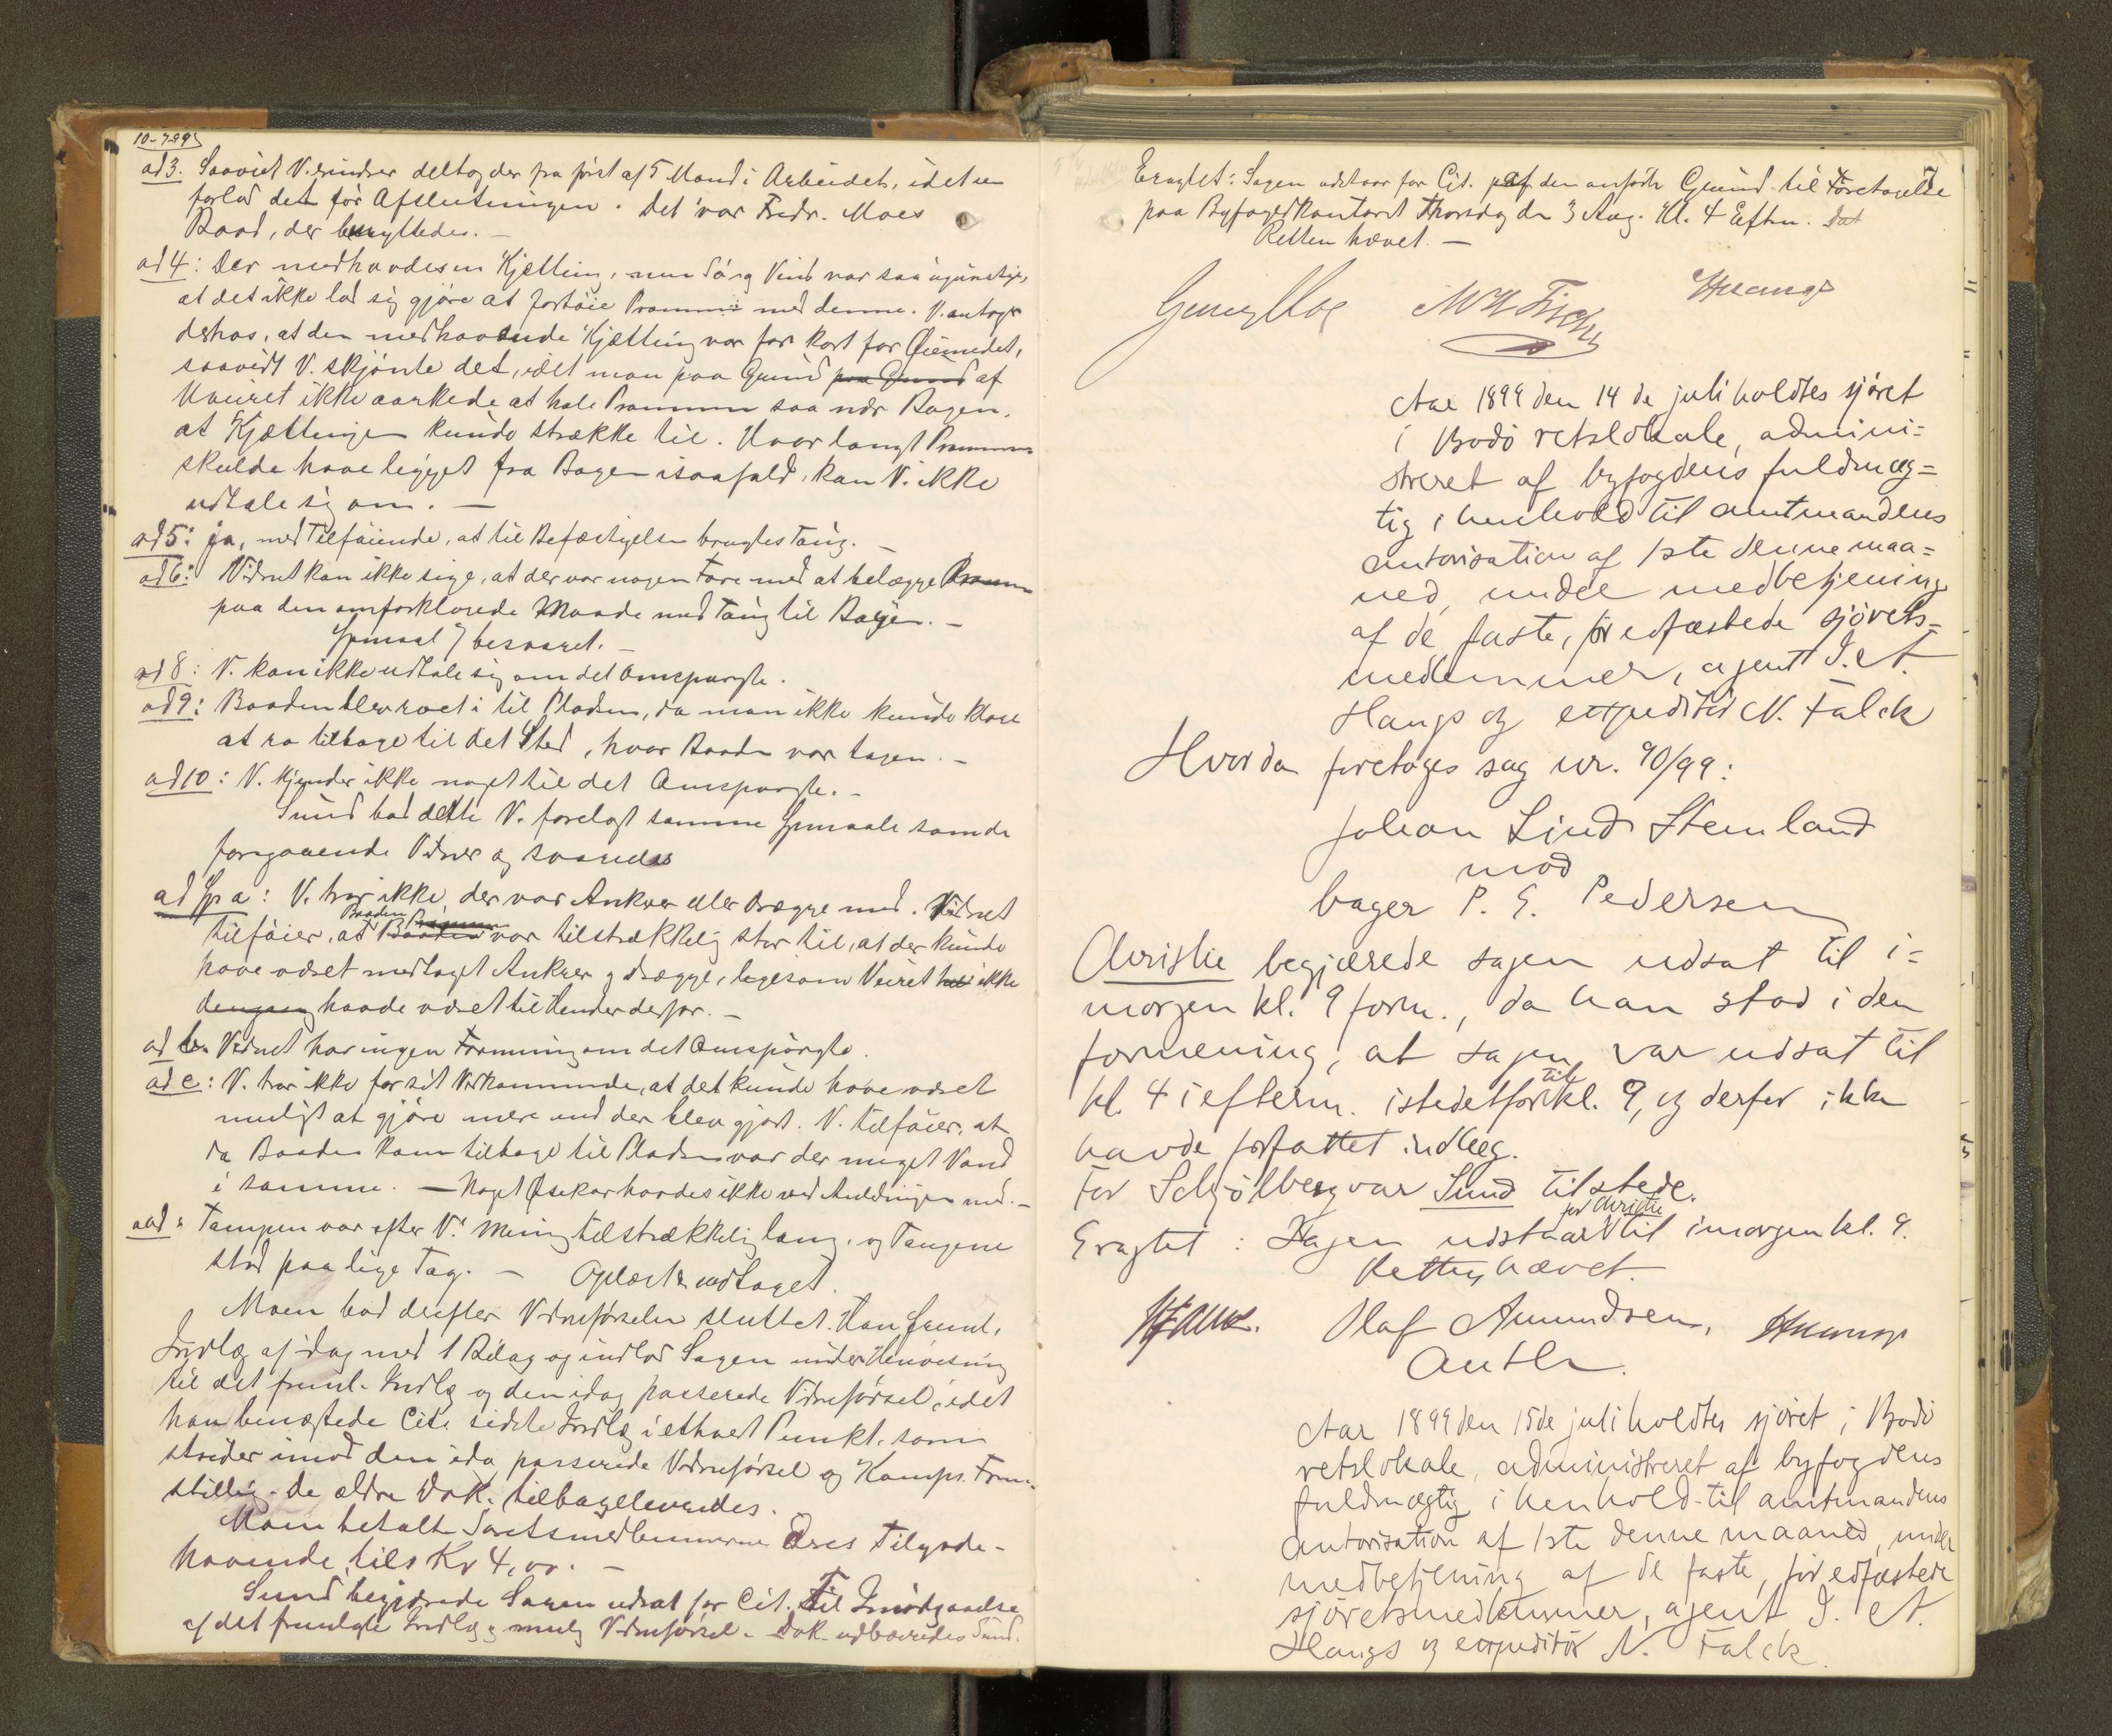 10-7-99
ad 3. Saavidt V. erindrer deltog der fra først af 5 Mand i Arbeidet, idet en
forlod det før Afslutningen. Det var Fredr. Moes
Baad, der benyttedes. —
ad 4: Der medhavdes en Kjetting, men Sø og Vind var saa ugunstige,
at det ikke lod sig gjøre at fortøie Prammen med denne. V. antager
derhos, at den medhavende Kjætting var for kort for Øiemedet,
saavidt V. skjønte det, idet man paa Grund paa Grund af
Veiret ikke aarkede at hale Prammen saa nær Bøgen,
at Kjættingen kunde strække til. Hvor langt Prammen
skulde have ligget fra Bøgen isaafald, kan V. ikke
udtale sig om. —
ad 5: ja, med Tilføiende, at til Befæstigelse brugtes Taug. —
ad 6: Vidnet kan ikke sige, at der var nogen Fare med at belægge Pramm
paa den omforklarede Maade med Taug til Bøgen. —
Spmaal 7 besvaret. —
ad 8: V. kan ikke udtale sig om det Omspurgte.
ad 9: Baaden blev roet i til Pladsen, da man ikke kunde klare
at ro tilbage til det Sted, hvor Baaden var tagen. —
ad 10: V. kjender ikke noget til det Omspurgte. —
Sund bad dette V. forelagt samme Spmaale som de
foregaaende Vidner og svaredes
ad Sp a: V. tror ikke, der var Ankre eller Drægge med. Vidnet
tilføier, at Baaden Baaden Prammen var tilstrækkelig stor til, at der kunde
have været medtaget Ankre og Drægge, ligesom Veiret hel ikke
dengang havde været til Hinder derfor. —
ad b. Vidnet har ingen Formening om det Omspurgte.
ad c: V. tror ikke for sit Vedkommende, at det kunde have været
muligt at gjøre mere end der blev gjort. V. tilføier, at
da Baaden kom tilbage til Pladsen var der meget Vand
i samme. — Noget Øsekar havdes ikke ved Anledningen med. —
ad d: Tampen var efter V.s Mening tilstrækkelig lang, og Taugene
stod paa lige Tag. — Oplæst & vedtaget.
Moen bad derefter Vidneførselen sluttet. Han freml.
Indlæg af idag med 1 Bilag og indlod Sagen under Henvisning
til det freml. Indlæg og den idag passerede Vidneførsel, idet
han benægtede Cit.s sidste Indlæg i ethvert Punkt, som
strider imod den idag passerede Vidneførsel og Komps. Frem-
stilling. De ældre Dok. tilbageleveredes.
Moen betalte Søretsmedlemmerne deres Tilgode-
havende, tils Kr 4,00. —
Sund begjærede Sagen udsat for Cit. til Imødgaaelse
af det fremlagte Indlæg og mulig Vidneførsel. Dok. udlaanedes Sund.
Eragtet: Sagen udstaar for Cit. paa af den anførte Grund til Foretagelse
paa Byfogedkontoret Thorsdag den 3 Aug. Kl. 4 Eftm. Dat
Retten hævet. —
Haugs
Aar 1899 den 14 de juli holdtes sjøret
i Bodø retslokale, admini=
streret af byfogdens fuldmæg=
tig i henhold til amtmandens
autorisation af 1ste denne maa=
ned, under medbetjening
af de faste, før edfæstede sjørets=
medlemmer, agent J. A.
Haugs og expeditør N. Falck
Hvorda foretoges sag nr. 90/99:
Johan Lind Stemland
mod
bager P. G. Pedersen
Christie begjærede sagen udsat til i=
morgen kl. 9 form., da han stod i den
formening, at sagen var udsat til
kl. 4 i efterm. istedetfor til kl. 9, og derfor ikke
havde forfattet indlæg.
For Schjølberg var Sund tilstede.
Eragtet: Sagen udstaar for Christie til imorgen kl. 9.
Retten hævet.
Olaf Amundsen, Haugs
Auth.
Aar 1899 den 15de juli holdtes sjøret i Bodø
retslokale, administreret af byfogdens
fuldmægtig i henhold til amtmandens
autorisation af 1ste denne maaned, under
medbetjening af de faste, før edfæstede
sjøretsmedlemmer, agent J. A.
Haugs og expeditør N. Falck.